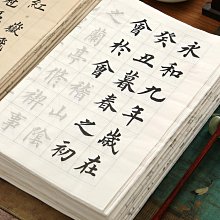 永和九年歲在
癸丑暮春之初
會於會稽山陰
之蘭亭脩禊事
紅